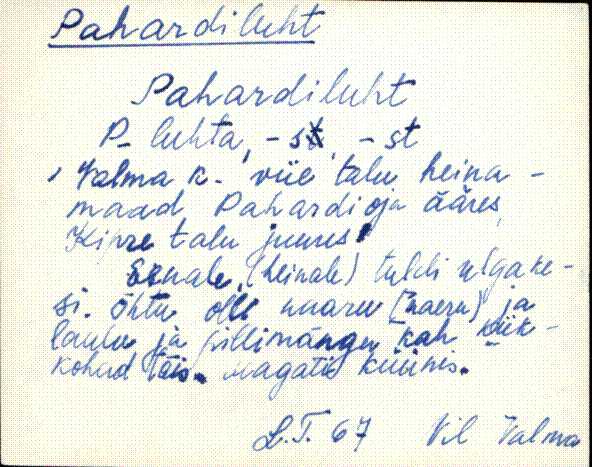 Pahardiluht
Pahardiluht
P- luhta, -st, -st
Valma k. viie talu heina-
maad Pahardi oja ääres,
Kipre talu juures.
(heinale) tuldi ulgake-
si. Õhtu olli naaru (naeru) ja
laulu ja pillimängu kah kõik-
kohad täis. Magati küünis.
L.T. 67 Vil Valma